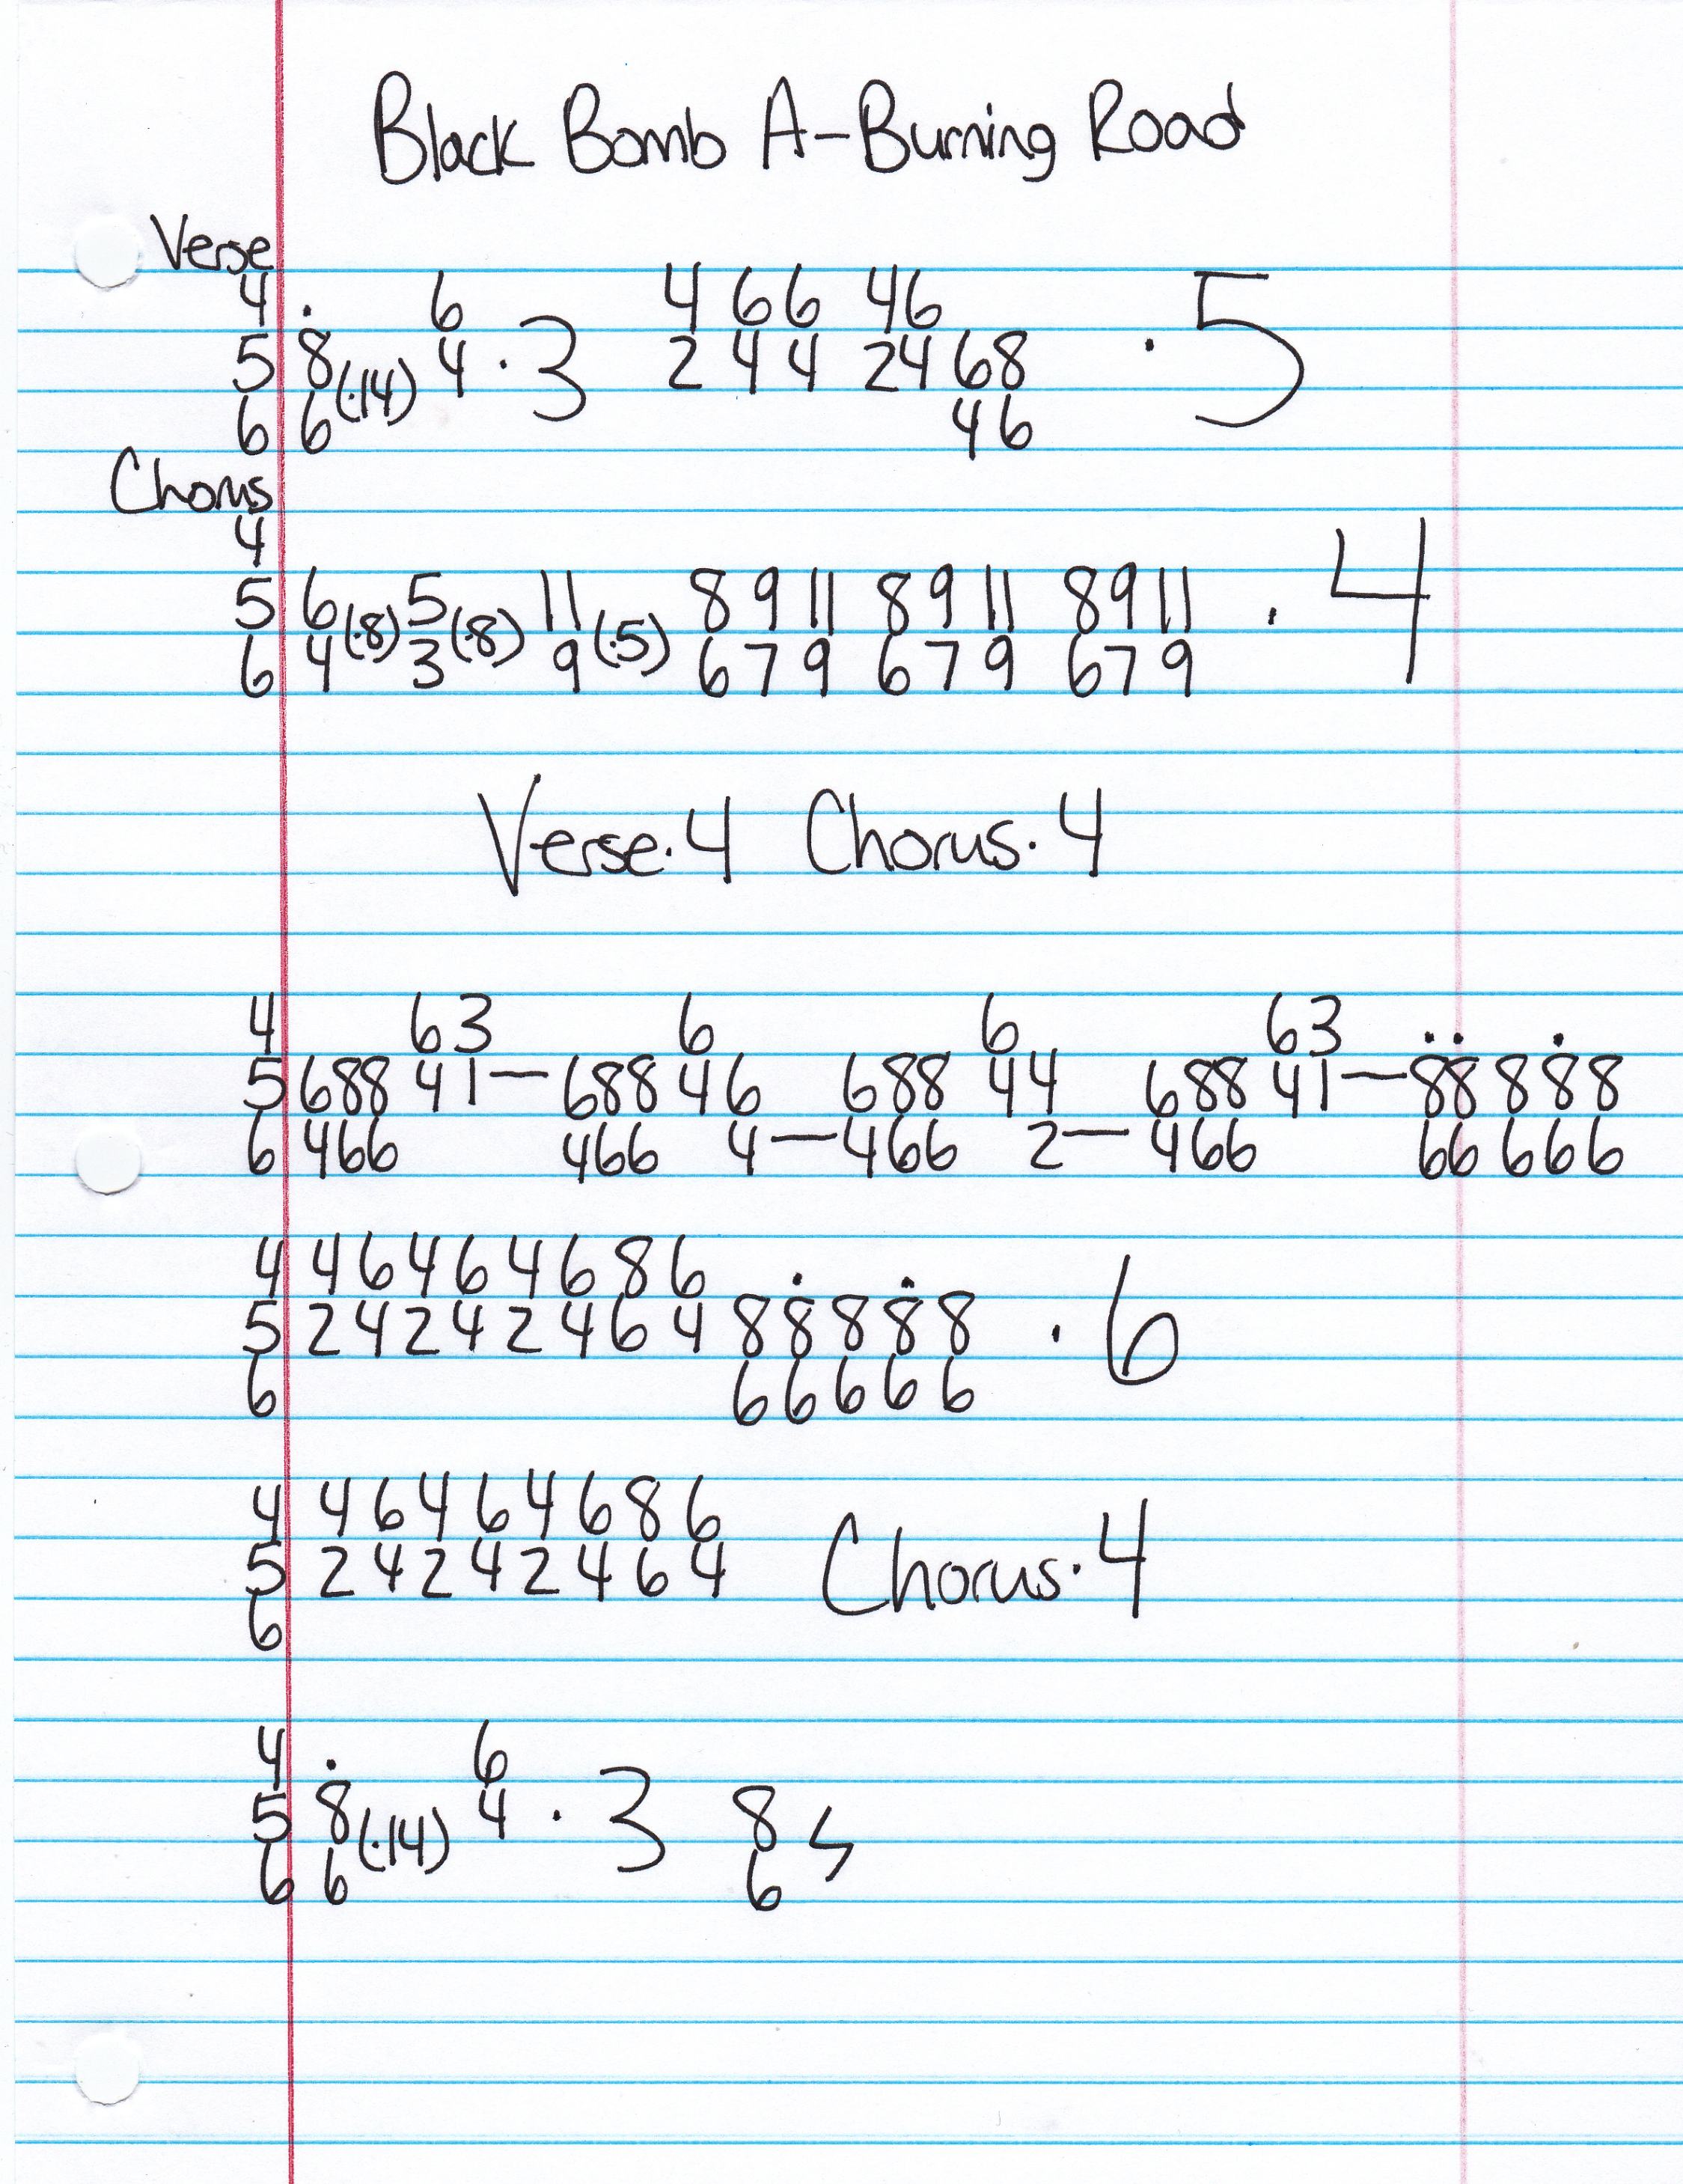 Black Bomb A-Burning Road
Verse
4 . 6 4 6 6 4 6
5 8 (·14) 4 · 3 2 4 4 2 4 6 8 · 5
6 6 4 6
Chorus
4
5 6 (·8) 5 (·8) 11 (·5) 8 9 11 8 9 11 8 9 11 · 4
6 4 3 9 6 7 9 6 7 9 6 7 9
Verse·4 Chorus·4
4 63 6 6 63 . . .
5 688 41— 688 46 688 44 688 41— 88 8 8 8
6 466 466 4— 466 2— 466 66 6 6 6
4 4 6 4 6 4 6 8 6 . .
5 2 4 2 4 2 4 6 4 8 8 8 8 8 · 6
6 6 6 6 6 6
4 4 6 4 6 4 6 8 6
5 2 4 2 4 2 4 6 4 Chorus·4
6
4 . 6
5 8 (·14) 4 · 3 8
6 6 6